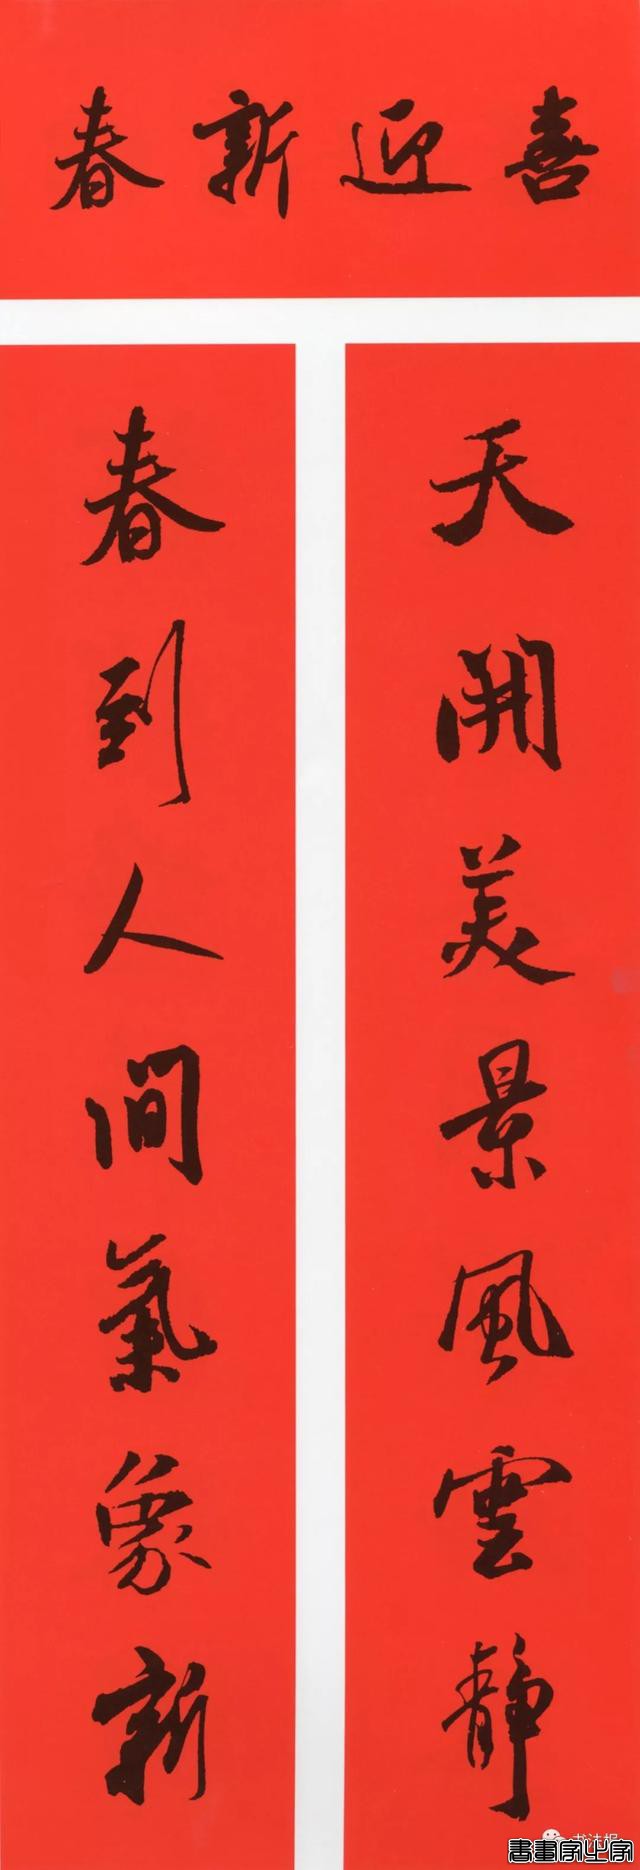 喜迎新春
天開美景風雲靜
春到人間氣象新
書法報
書畫家之家